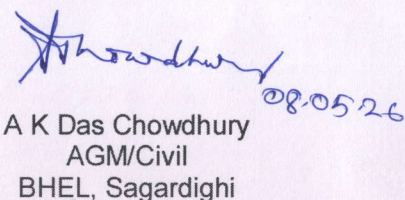 Chowdhury
08.05.26
A K Das Chowdhury
AGM/Civil
BHEL, Sagardighi